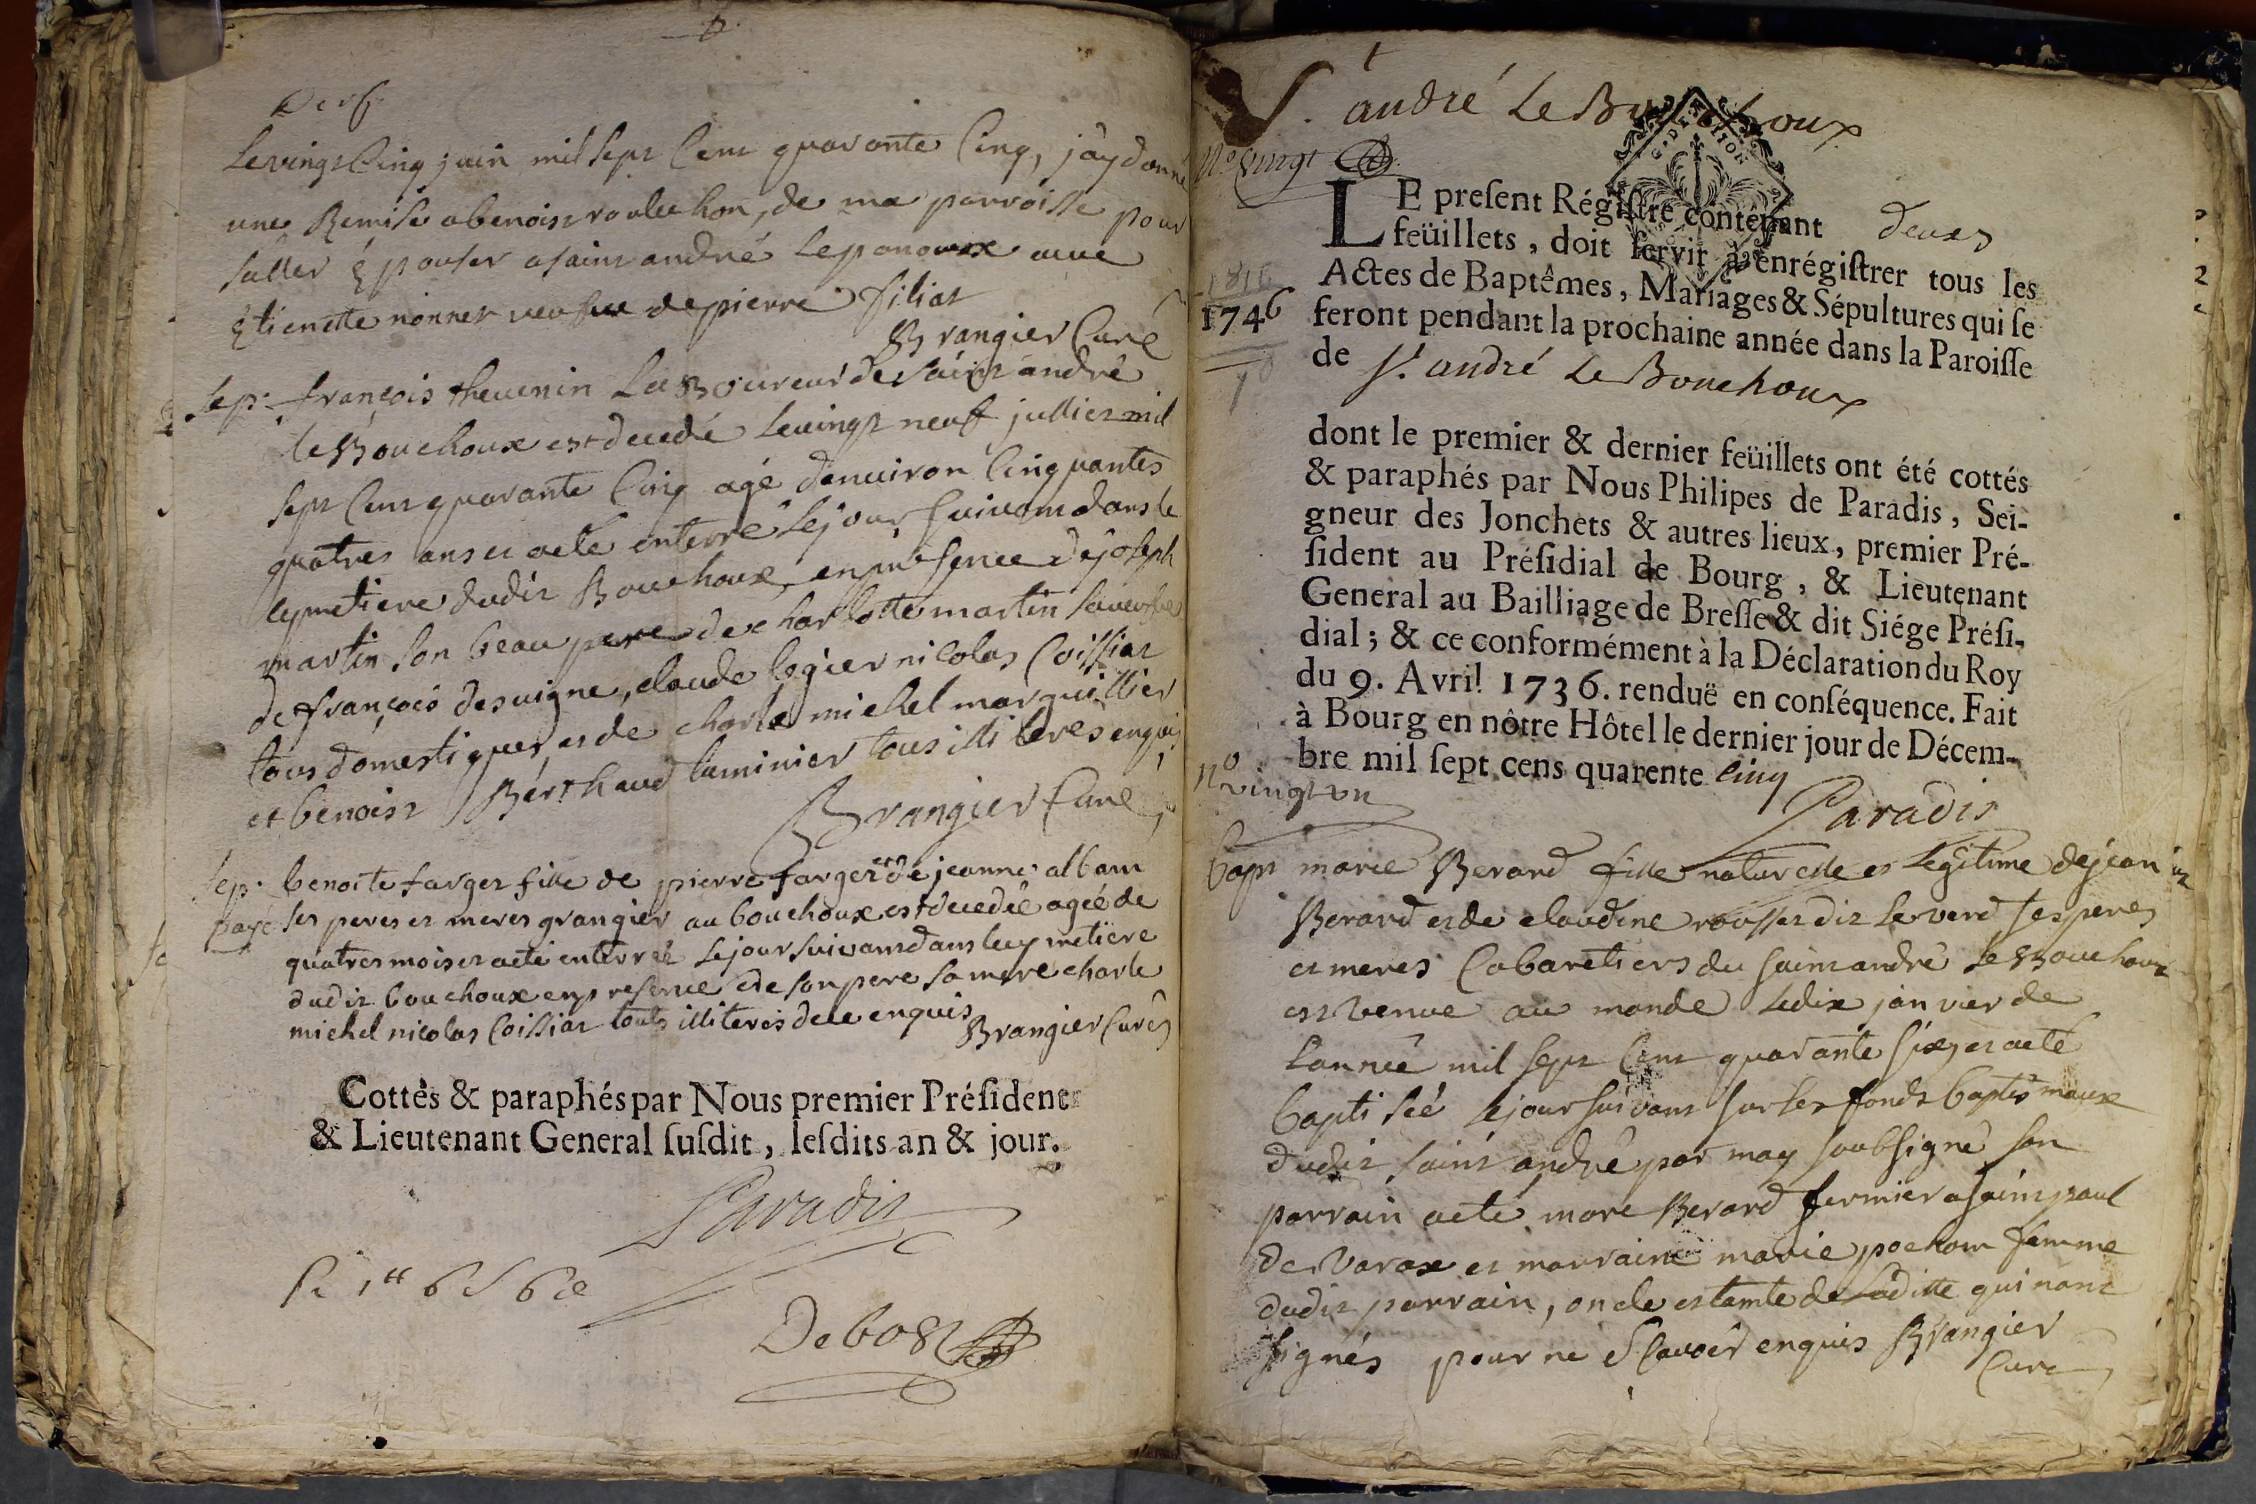 Levingt Cinq juin mil sept Cent quarante Cinq, j'ay donné
une Remise a benoist rouluchon, de ma parroisse pour
saller Épouser a saint andré Lepanoux avec
Étienette nonner veufue depierre filiat
Brangier Curé
Sep. françois thevenin LaBoureur de saint andré
le Bouchoux est decedé Levingt neuf jullier mil
sept Cent quarante Cinq agé denuiron Cinquantes
quatres ans et aeté enterré Lejour suivant dans le
cymetiere dudit Bouchoux, enpresence dejoseph
martin son beau pere de charlotte martin sa veufve
de françois desvigne, claude logier nicolas Coissiat
tous domestiques, et de charle michel marguillier
et benoist Berthaud luminier tous illiteres enquis
Brangier Curé
Sep. benoite farget fille de pierre farget et de jeanne alban
payé ses peres et meres grangier au bouchoux est decedée agée de
quatres mois et aeté enterrée Lejour suivant dans le cymetiere
dudit bouchoux enpresence de son pere sa mere charle
michel nicolas Coissiat touts illiteres de ce enquis
Brangier Curé
Cottès & paraphés par Nous premier Président
& Lieutenant General susdit, lesdits an & jour.
Paradis
Debost
St. andré Le Bouchoux
No. vingt
LE present Régistre contenant deux
feüillets, doit servir à enrégistrer tous les
Actes de Baptêmes, Mariages & Sépultures qui se
1746
feront pendant la prochaine année dans la Paroisse
de St. andré Le Bouchoux
dont le premier & dernier feüillets ont été cottés
& paraphés par Nous Philipes de Paradis, Sei-
gneur des Jonchets & autres lieux, premier Pré-
sident au Présidial de Bourg, & Lieutenant
General au Bailliage de Bresse & dit Siége Prési-
dial; & ce conformément à la Déclaration du Roy
du 9. Avril 1736. renduë en conséquence. Fait
à Bourg en nôtre Hôtel le dernier jour de Décem-
bre mil sept cens quarente Cinq
No vingt un
Paradis
bapt marie Berard fille naturelle et Legitime dejean
Berard et de claudine rousset dit Leverd ses peres
et meres Cabaretiers du saint andré le Bouchoux
est venue au monde Ledix janvier de
Lannée mil sept Cent quarante six, et aeté
baptisée lejour suivant sur les fonds baptismaux
dudit saint andré par moy soubsigné son
parrain aeté marc Berard fermier a saint paul
de Varax et marraine marie pochon femme
dudit parrain, oncle et tante de Laditte qui nont
signés pour ne Sçavoir enquis Brangier
Curé